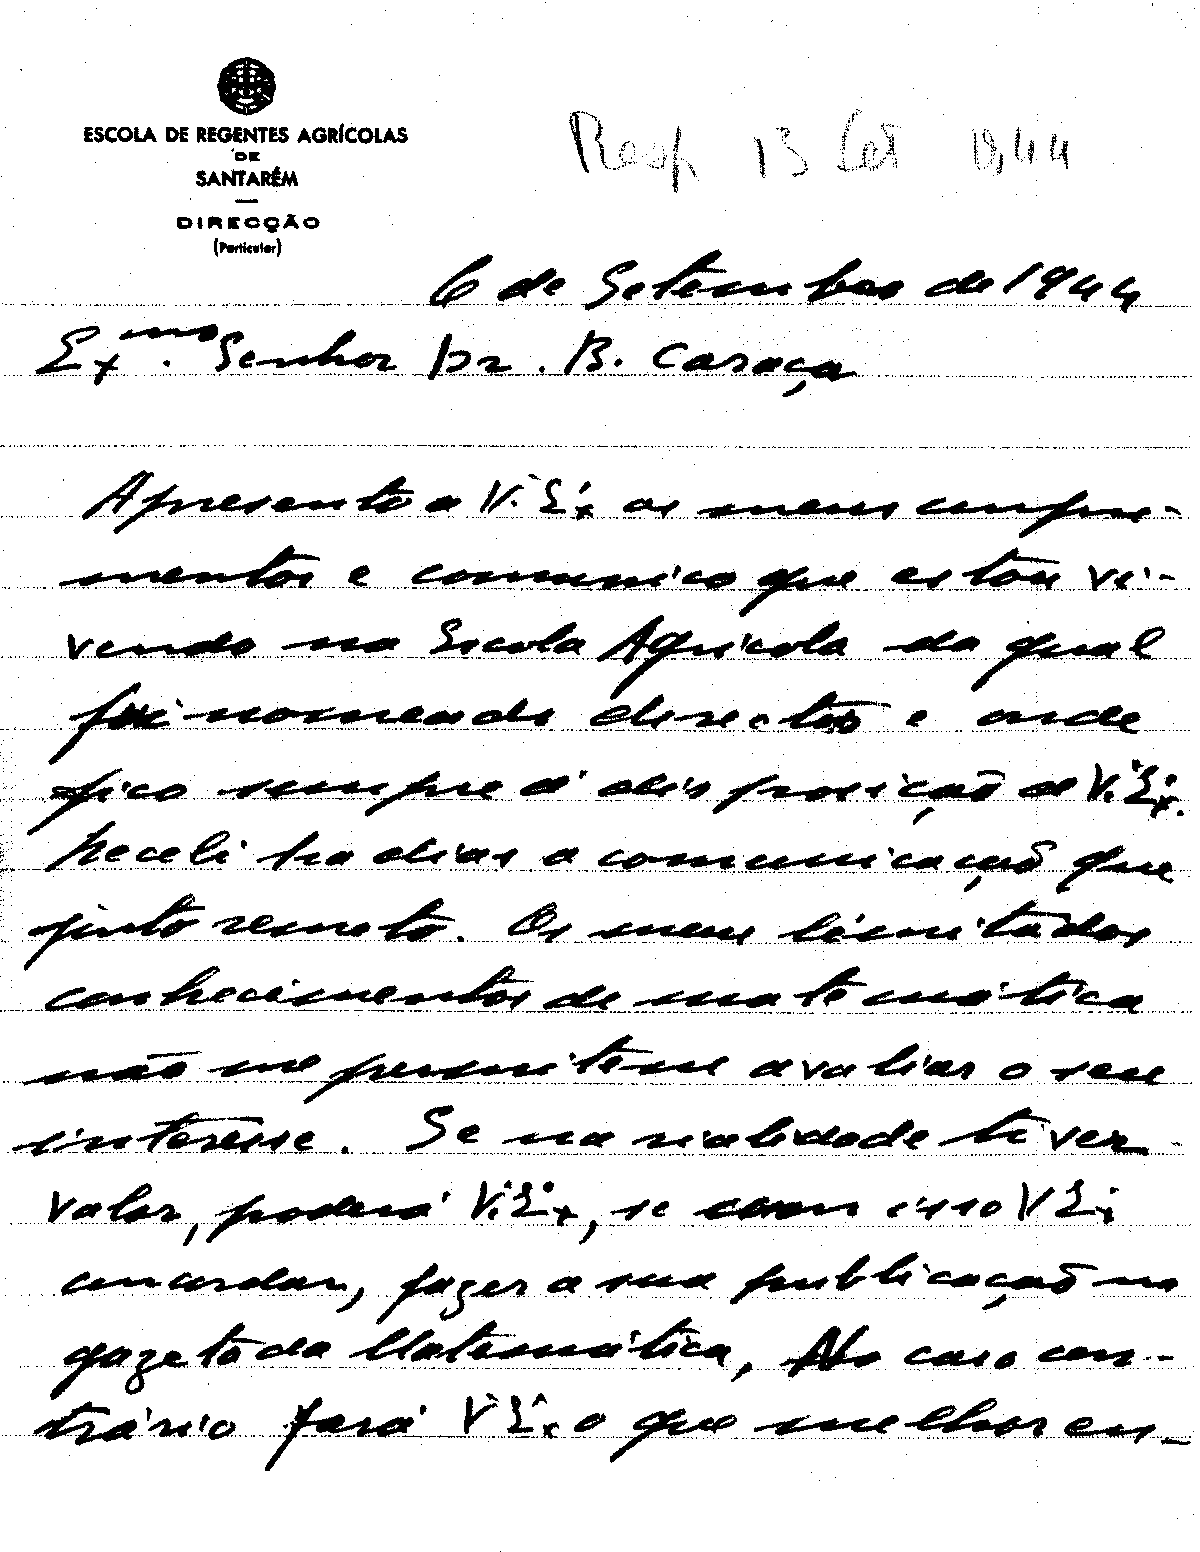 ESCOLA DE REGENTES AGRÍCOLAS
DE
SANTARÉM
DIRECÇÃO
(Particular)
Resp. 13 Set 1944
6 de Setembro de 1944
Exmo. Senhor Dr. B. Caraça
Apresento a V. Ex. os meus cumpri-
mentos e comunico que estou vi-
vendo na Escola Agrícola da qual
fui nomeado director e onde
fico sempre á disposição de V. Ex.
Recebi ha dias a comunicação que
junto remeto. Os meus limitados
conhecimentos de matemática
não me permitem avaliar o seu
interêsse. Se na rialidade tiver
valor, poderá V. Ex., se com isso V Ex
concordar, fazer a sua publicação na
gazeta da Matemática, No caso con-
trário fará V Ex. o que melhor en-